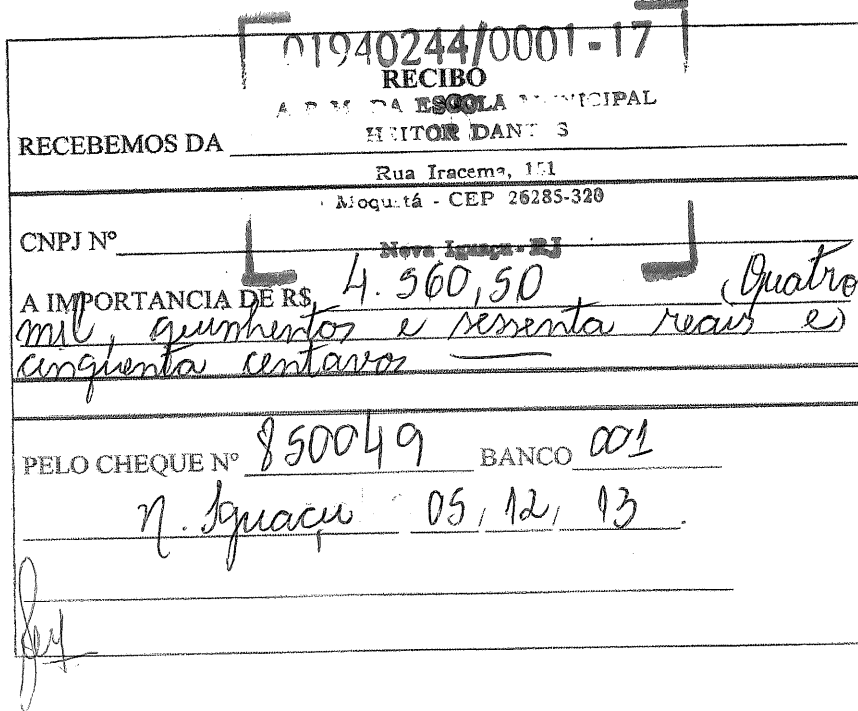 01940244/0001-17
RECIBO
DA ESCOLA MUNICIPAL
RECEBEMOS DA HEITOR
Rua Iracema, 151
Moquetá - CEP 26285-320
CNPJ Nº
Nova Iguaçu - RJ
A IMPORTANCIA DE R$ 4.560,50 (Quatro
mil, quinhentos e sessenta reais e)
cinqüenta centavos
PELO CHEQUE Nº 850049 BANCO 001
N. Iguaçu 05, 12, 13.